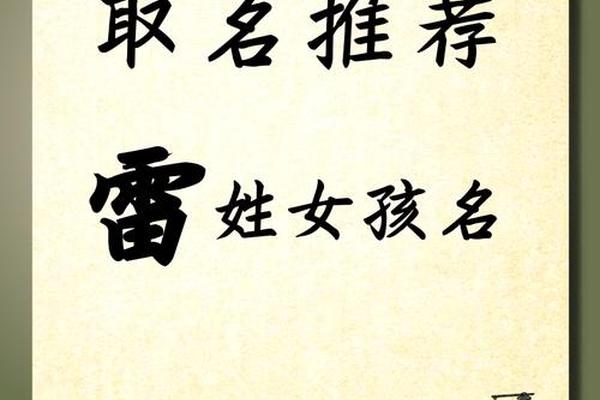 取名推荐
雷姓女孩名